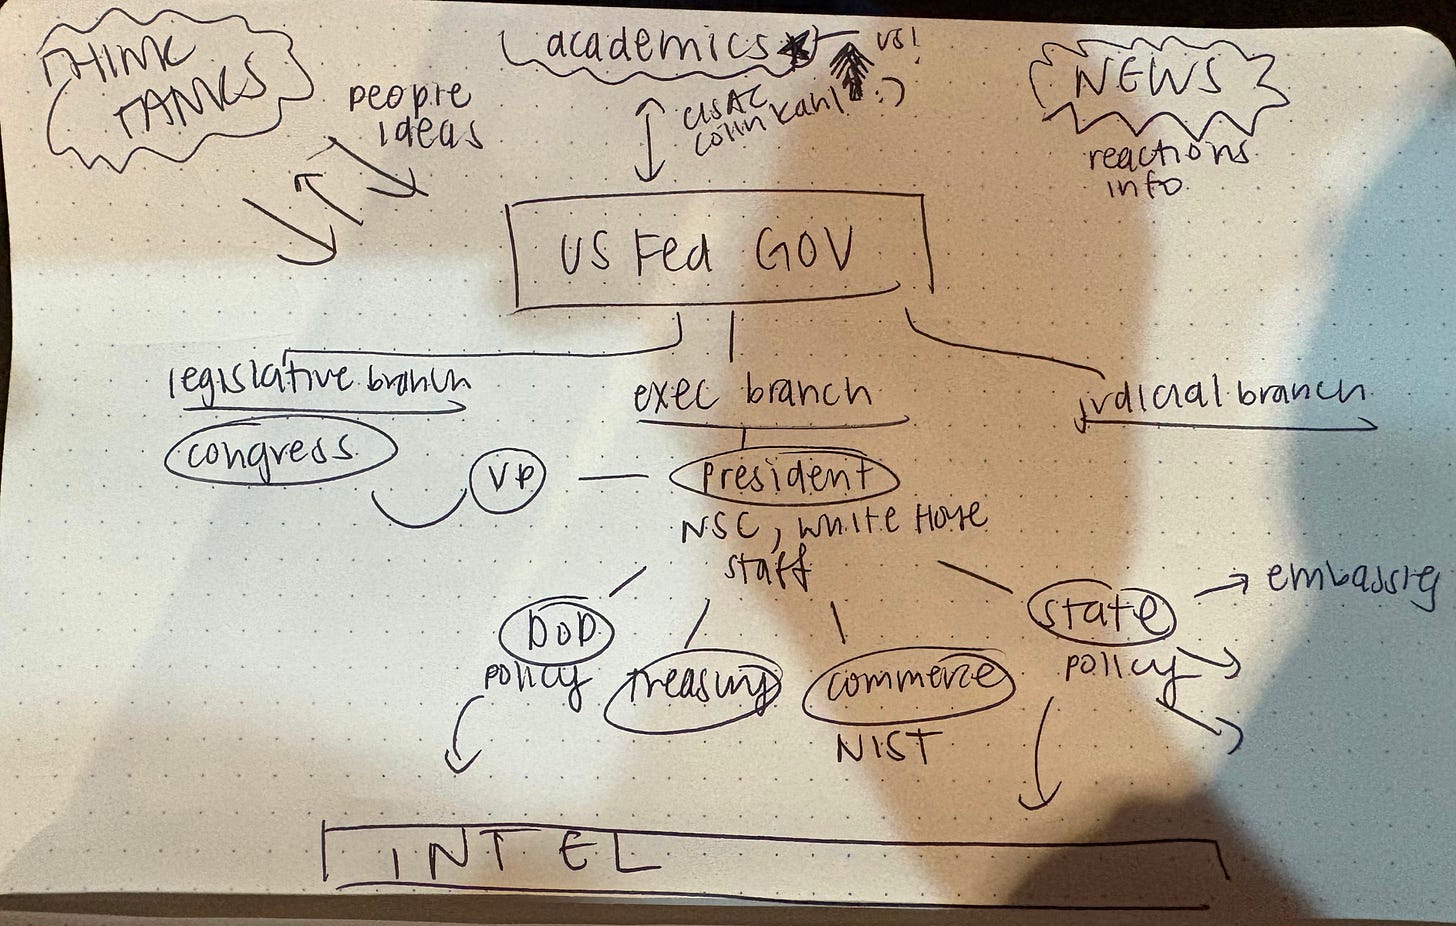 THINK
TANKS
people
ideas
academics
US!
:)
CISAC
Colin Kahl
NEWS
reactions
info
US Fed GOV
legislative branch
exec branch
judicial branch
congress
VP
president
NSC, White House
staff
DoD
policy
treasury
commerce
NIST
state
policy
embassies
INTEL